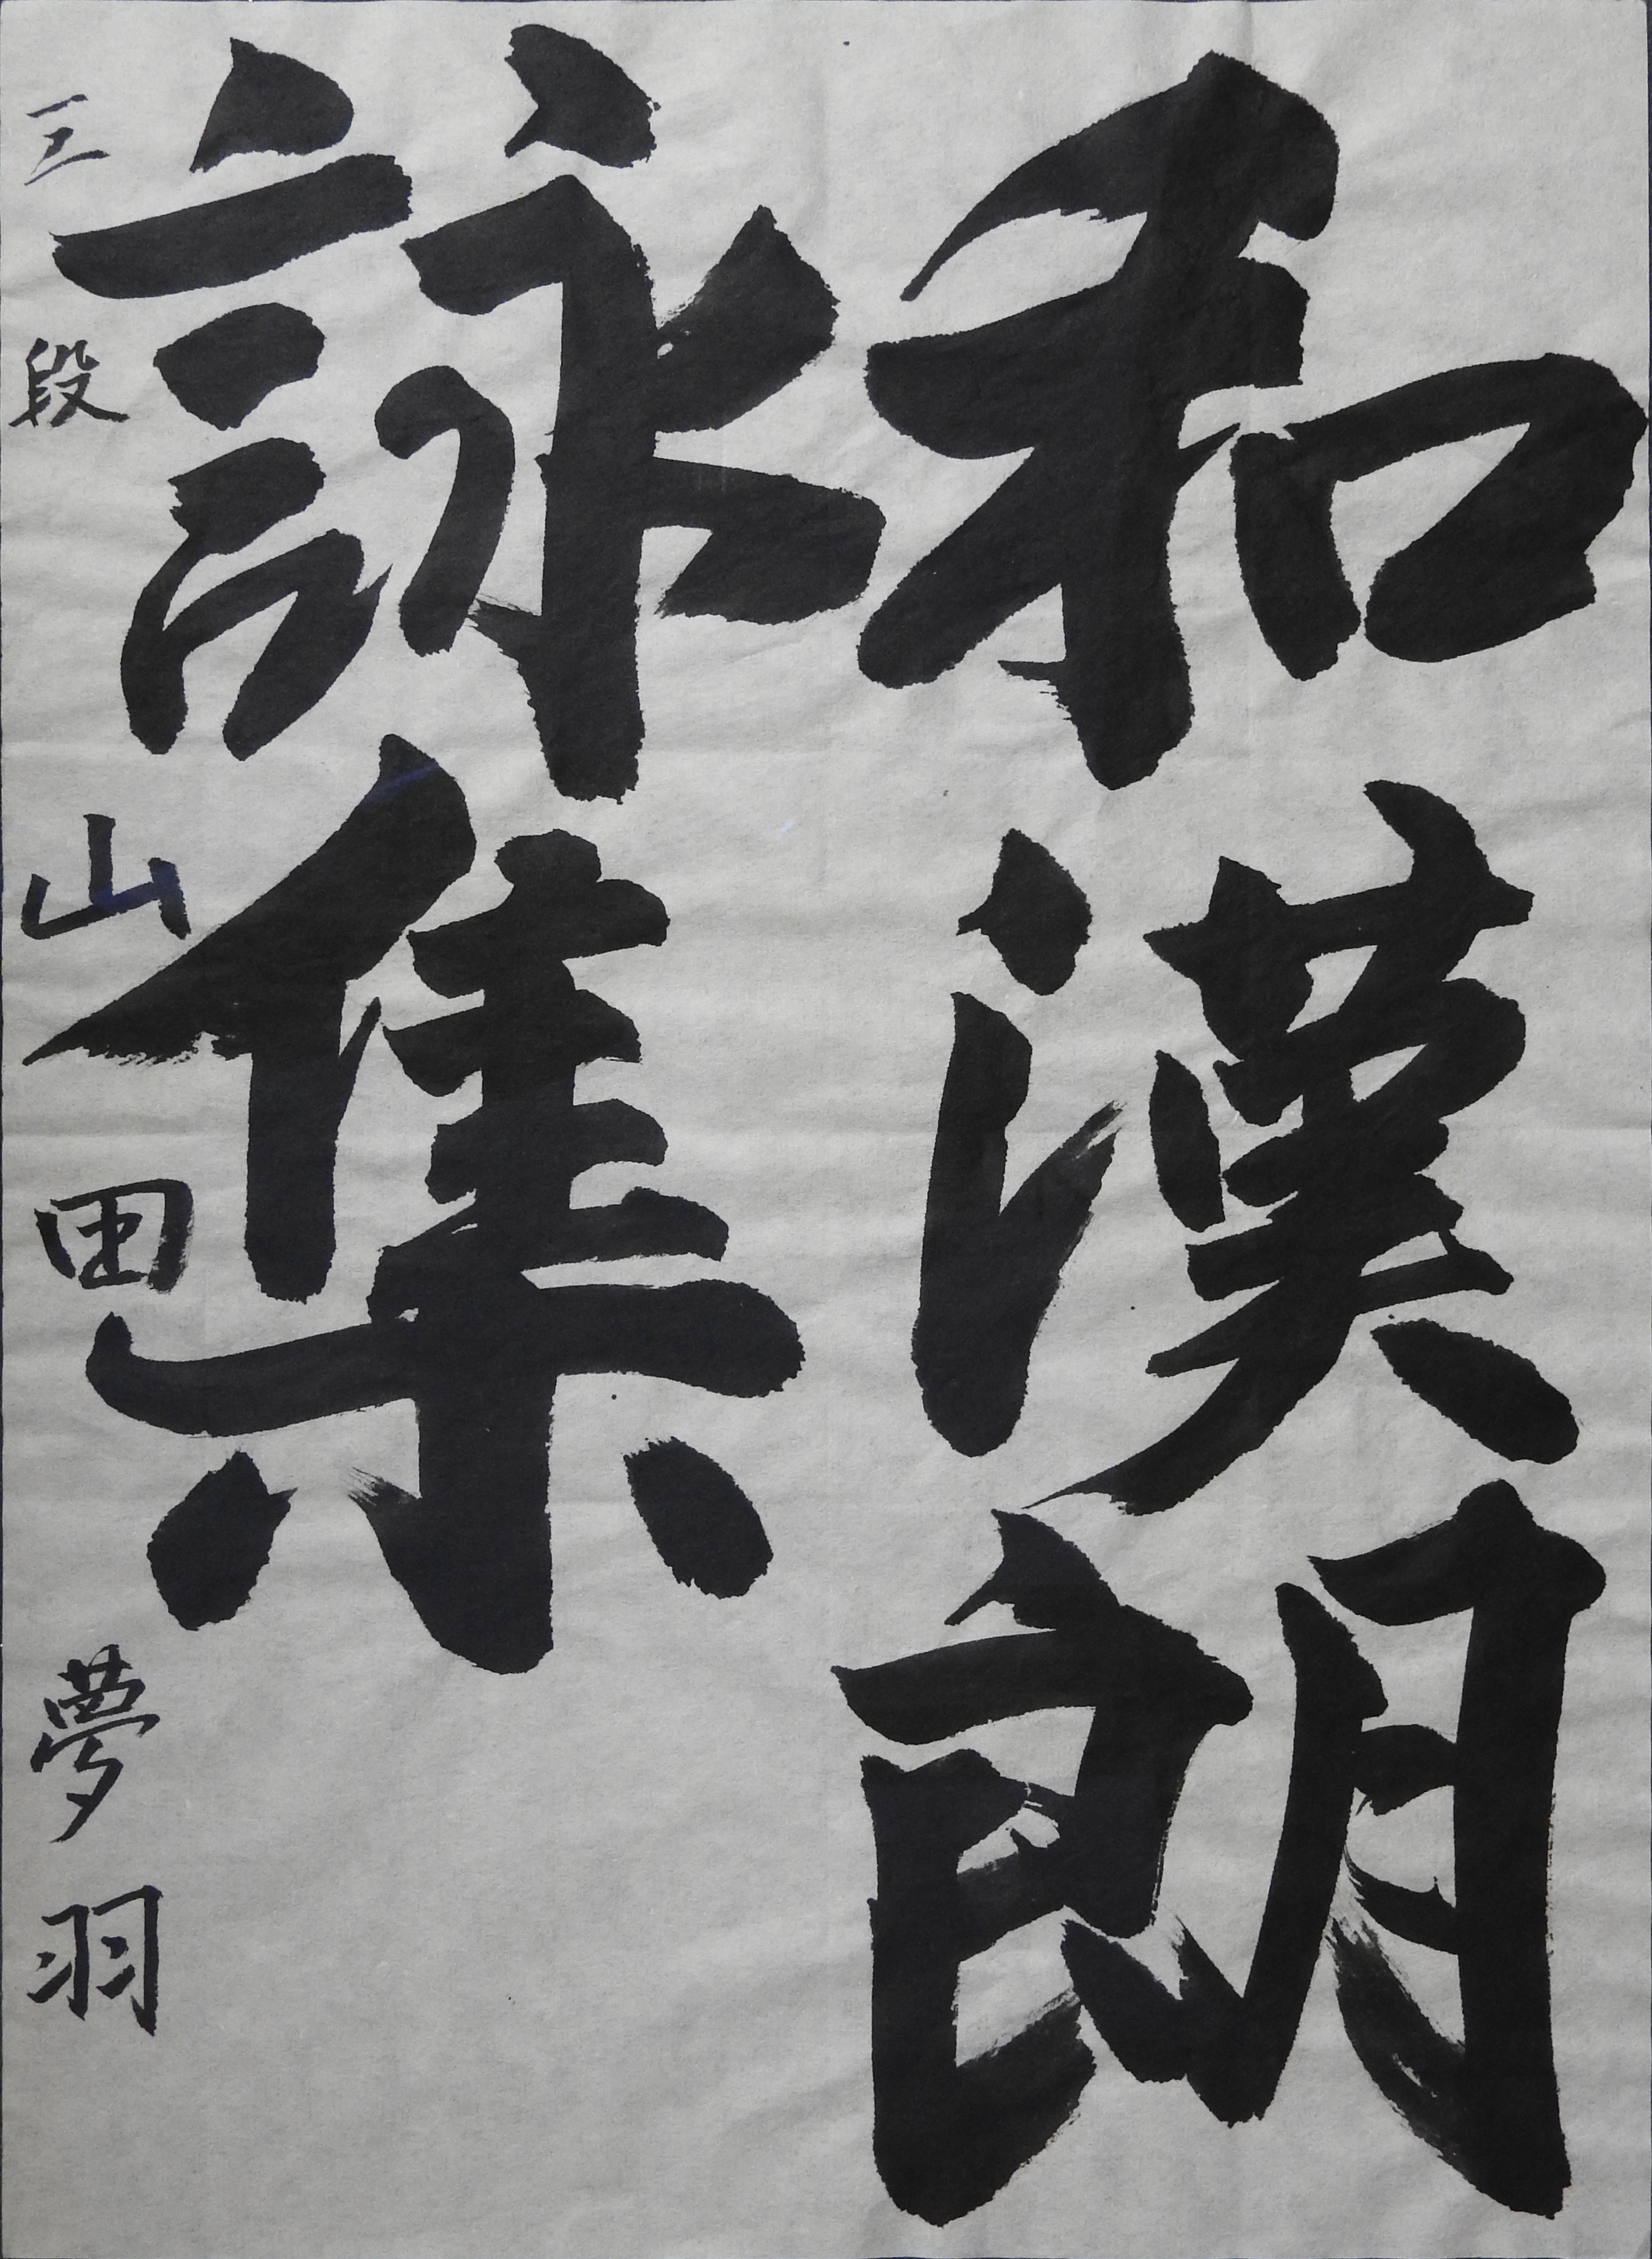 和漢朗
詠集
三段 山田夢羽